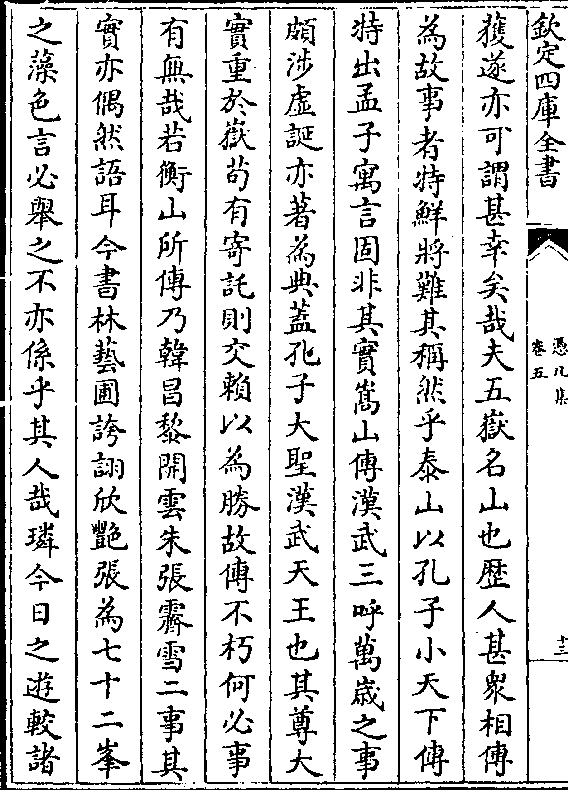 欽定四庫全書
憑几集
卷五
十三
獲遂亦可謂甚幸矣哉夫五嶽名山也歴人甚衆相傳
為故事者特鮮將難其稱然乎泰山以孔子小天下傳
特出孟子寓言固非其實嵩山傳漢武三呼萬歳之事
頗涉虚誕亦著為典蓋孔子大聖漢武天王也其尊大
實重於嶽茍有寄託則交賴以為勝故傳不朽何必事
有無哉若衡山所傳乃韓昌黎開雲朱張霽雪二事其
實亦偶然語耳今書林藝圃誇詡欣艷張為七十二峯
之藻色言必舉之不亦係乎其人哉璘今日之遊較諸